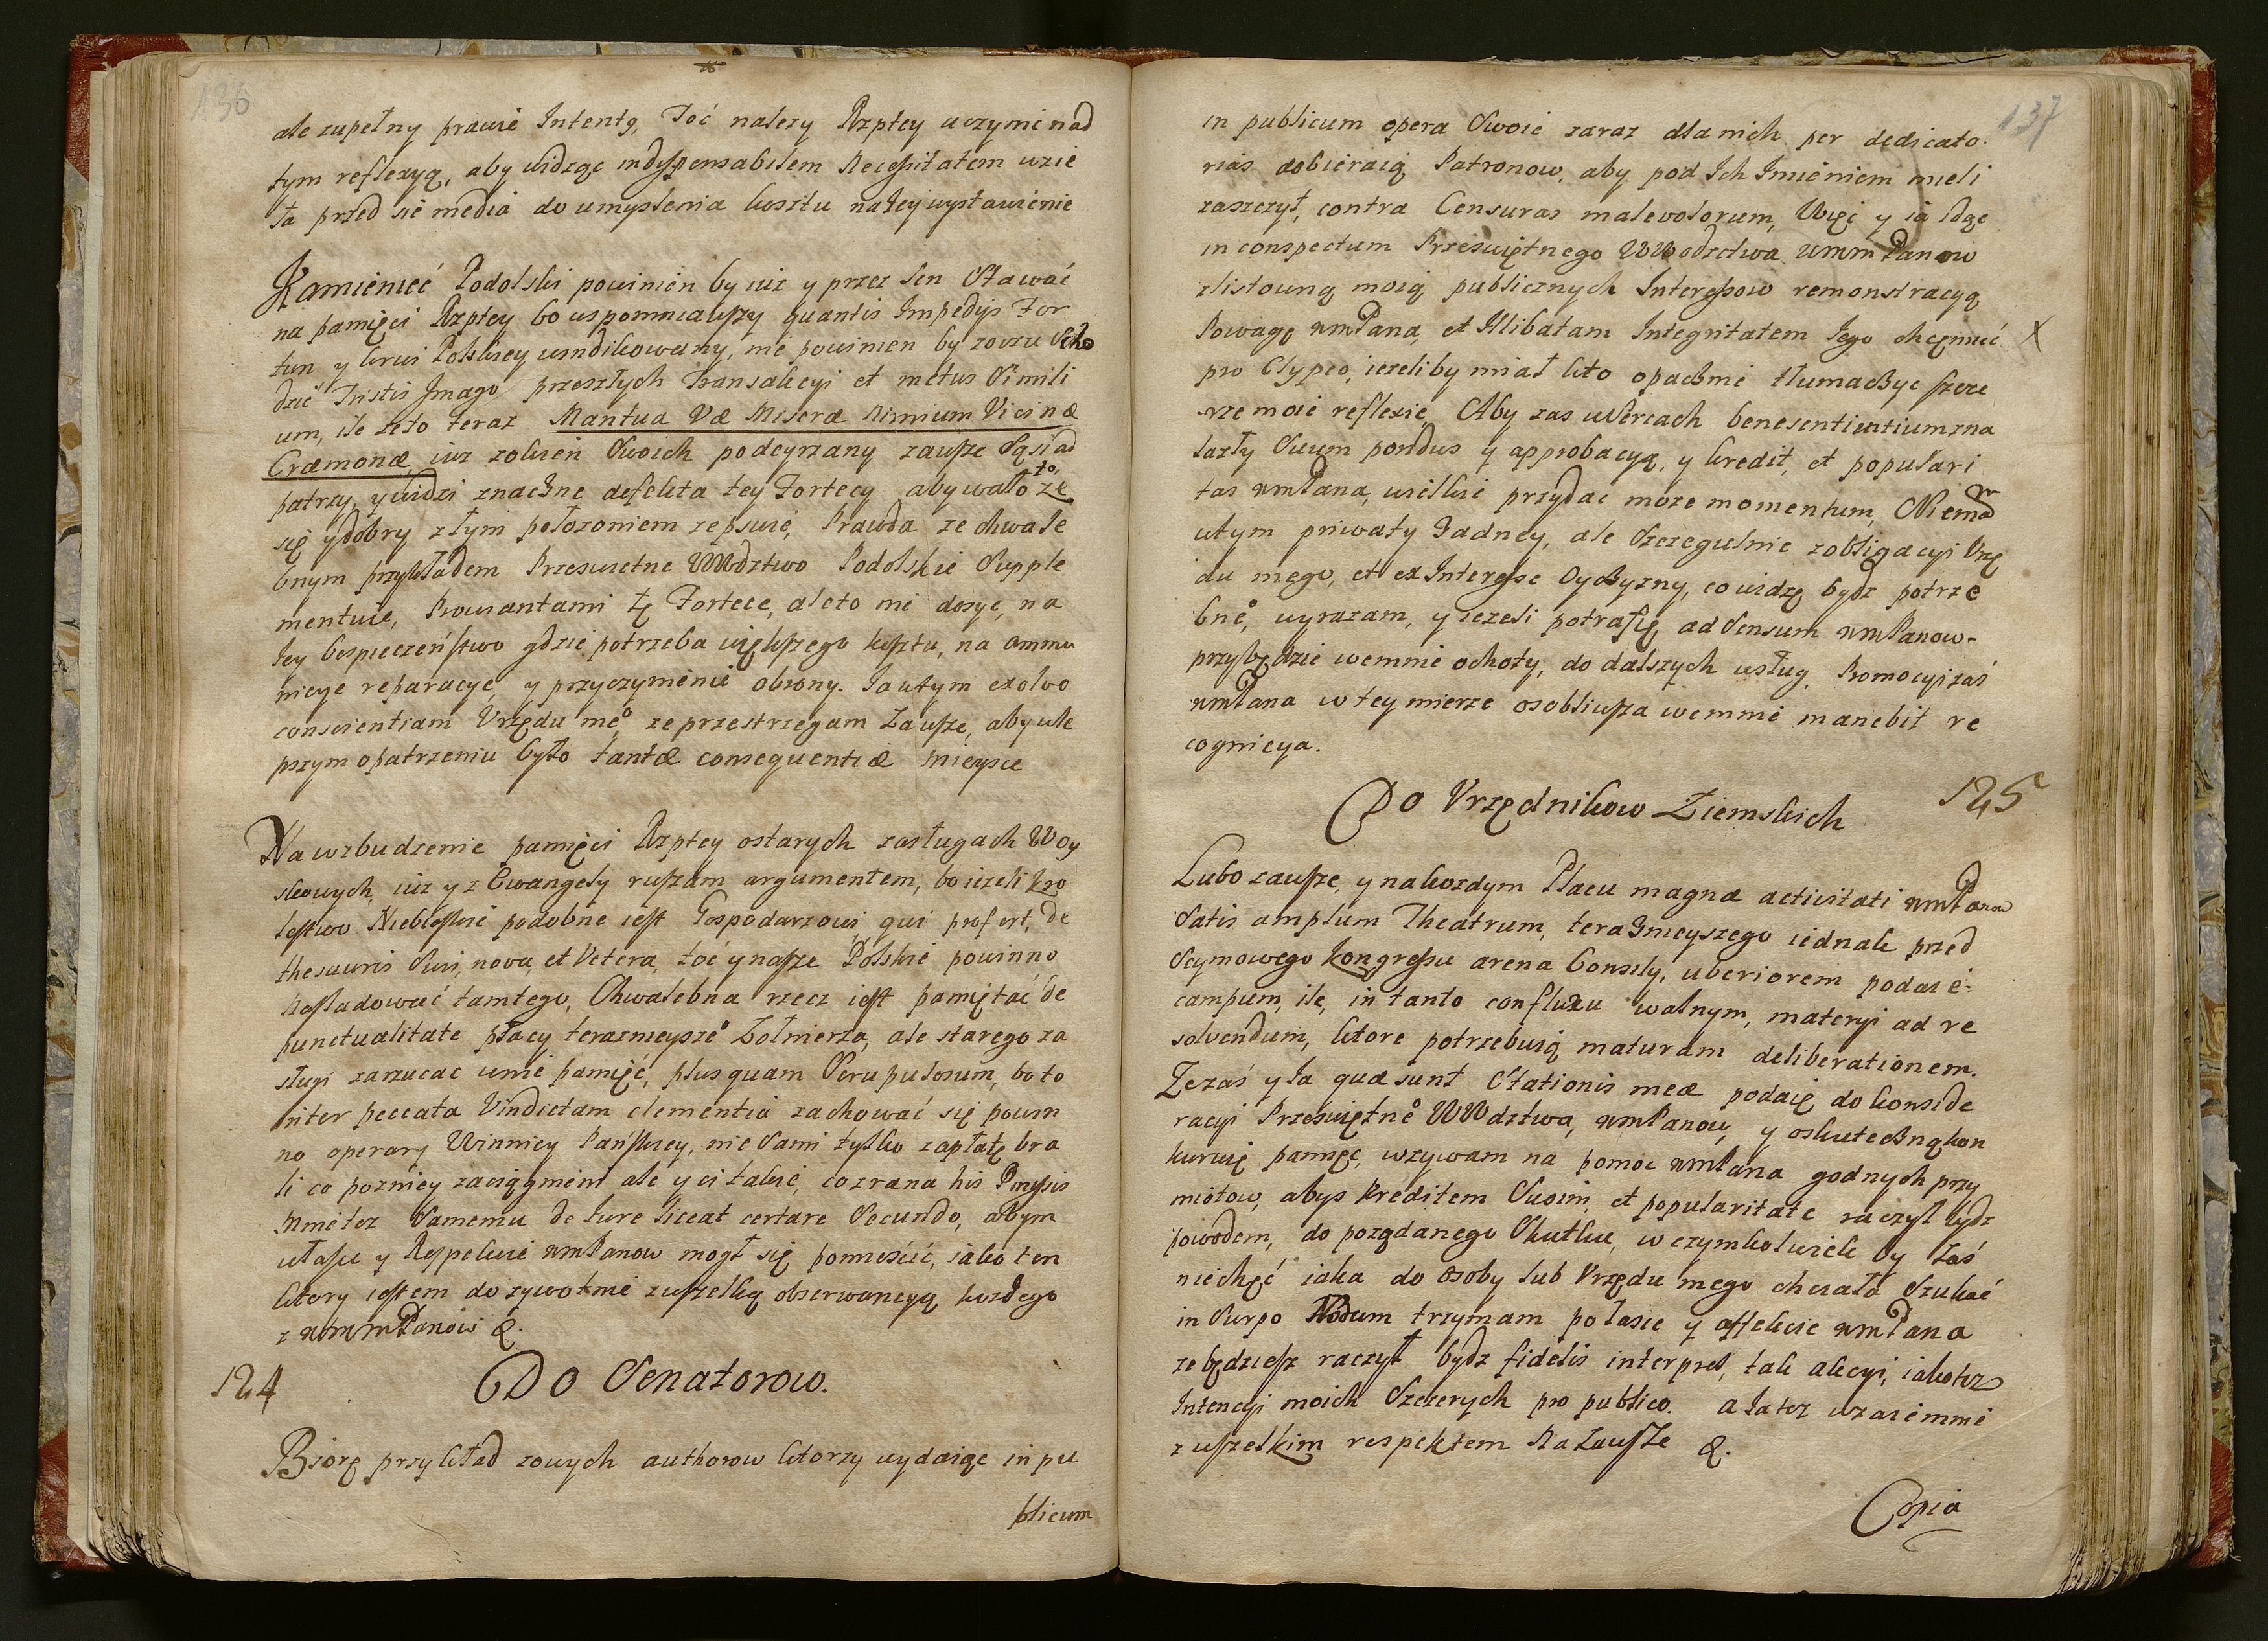 136
ale zupełny prawie Intentg, Toć nalezy Rzptey uczynić nad
tym reflexyą, aby widząc indyspensabilem Necessitatem wzie
ła przed się media do umyslenia kosztu na Iey wystawienie
Kamienieć Podolski powinien by iuz y przez sen Stawać
na pamięci Rzptey bo wspomniawszy quantis Impedijs For
tun y krwi Polskiey windikowany, nie powinien by zoczu scho
dzić Tristis Imago przeszłych Transakcyi et metus Simili
um, ile zeto teraz Mantua Væ Miseræ Nimium Vicinæ
Cræmonæ, iuz zokien Swoich podeyrzany zawsze Sąsiad
patrzy, y widzi znaczne defekta tey Fortecy abywało to, ze
się y dobry złym połozoniem zepsuie, Prawda ze chwale
bnym przykładem Przeswietne WWdztwo Podolskie Supple
mentuie, Prowiantami tę Fortece, aleto nie dosyc, na
Iey bespieczeństwo gdzie potrzeba większego kosztu, na ammu
nicye reparacye, y przyczynienie obrony. Ia wtym exolvo
conscientiam Vrzędu me⁰, ze przestrzegam Zawsze, aby w le
pszym opatrzeniu było tantæ consequentiæ mieysce
Nawzbudzenie pamięci Rzptey ostarych zasługach Woy
skowych, iuz y z Ewangely ruszam argumentem, bo iezeli kro
lestwo Niebieskie podobne iest Gospodarzowi, qui profert, de
thesauris Suis, nova, et Vetera, toć y nasze Polskie powinno
Nasladować tamtego, Chwalebna rzecz iest pamiętać de
punctualitate płacy teraznieysze⁰ Zołnierza, ale starego za
sługi zarzucac wnie pamięć, plus quam Scrupulosum, bo to
inter peccata Vindictam clementia zachować się powin
no operary Winnicy Pańskiey, nie Sami tylko zapłatę bra
li co pozniey zaciągnieni ale y ci takze, co zrana his Pmissis
Mnie tez Samemu de Iure liceat certare Secundo, abym
własce y Respekcie wmPanow mogł się pomieścić, iako ten
ktory iestem do zywotnie zwszelką obserwancyą kozdego
z wmmPanow &.
124 Do Senatorow.
Biorę przykład zowych authorow ktorzy wydaiąc in pu
blicum
137
in publicum opera Swoie zaraz dla nich per dedicato-
rias dobieraią Patronow, aby pod Ich Imieniem mieli
zaszczyt, contra Censuras malevolorum, Więc y ia idąc
in conspectum Przeswiętnego WWodzctwa WmmPanow
zlistowną moią publicznych Interessow remonstracyą
Powagę wmPana, et Illibatam Integritatem Iego chcę mieć X
pro Clypeo, iezeliby miał kto opacznie tłumaczyc szcze
rze moie reflexie, Aby zas wSercach benesentientium zna
lazły Suum pondus y approbacyą, y kredit, et populari
tas wmPana, wielkie przydac moze momentum, Niemasz
wtym priwaty Zadney, ale Szczegulnie zobligacyi Vrzę
du mego, et ex Interesse Oyczyzny, co widzę bydz potrze
bne⁰, wyrazam, y iezeli potrafię ad Sensum wmPanow-
przybędzie wemnie ochoty, do dalszych usług, Promocyi zaś
wmPana w tey mierze osobliwsza wemnie manebit re
cognicya.
Do Vrzędnikow Ziemskich 125
Lubo zawsze, y nakozdym Placu magnæ activitati wmPana
Satis amplum Theatrum, teraznieyszego iednak przed
Seymowego kongressu arena Consily, uberiorem podaie-
campum, ile, in tanto confluxu walnym, materyi ad re
solvendum, ktore potrzebuią maturam deliberationem.
Zezaś y Ia quæ sunt Stationis meæ podaię do konside
racyi Przeswiętne⁰ WWdztwa, wmPanow, y oskuteczną kon
kuruię pamięc, wzywam na pomoc wmPana godnych przy
miotow, abys kreditem Swoim, et popularitate raczył bydz
powodem, do poządanego Skutku, w czymkolwiek by zaś
niechęć iaka do Osoby lub Vrzędu mego chciała Szukać
in Surpo Nodum trzymam po łasce y affekcie wmPana
ze będziesz raczył bydz fidelis interpres, tak akcyi, iako tez
Intencyi moich Szczerych pro publico. a Ia tez wzaiemnie
z wszelkim respektem Na Zawsze &.
Copia